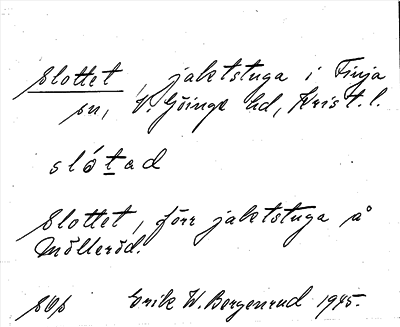 Slottet, jaktstuga i Finja
sn, V. Göinge hd, Krist. l.
slótad
Slottet, förr jaktstuga å
Mölleröd.
Erik W. Bergenrud 1945.